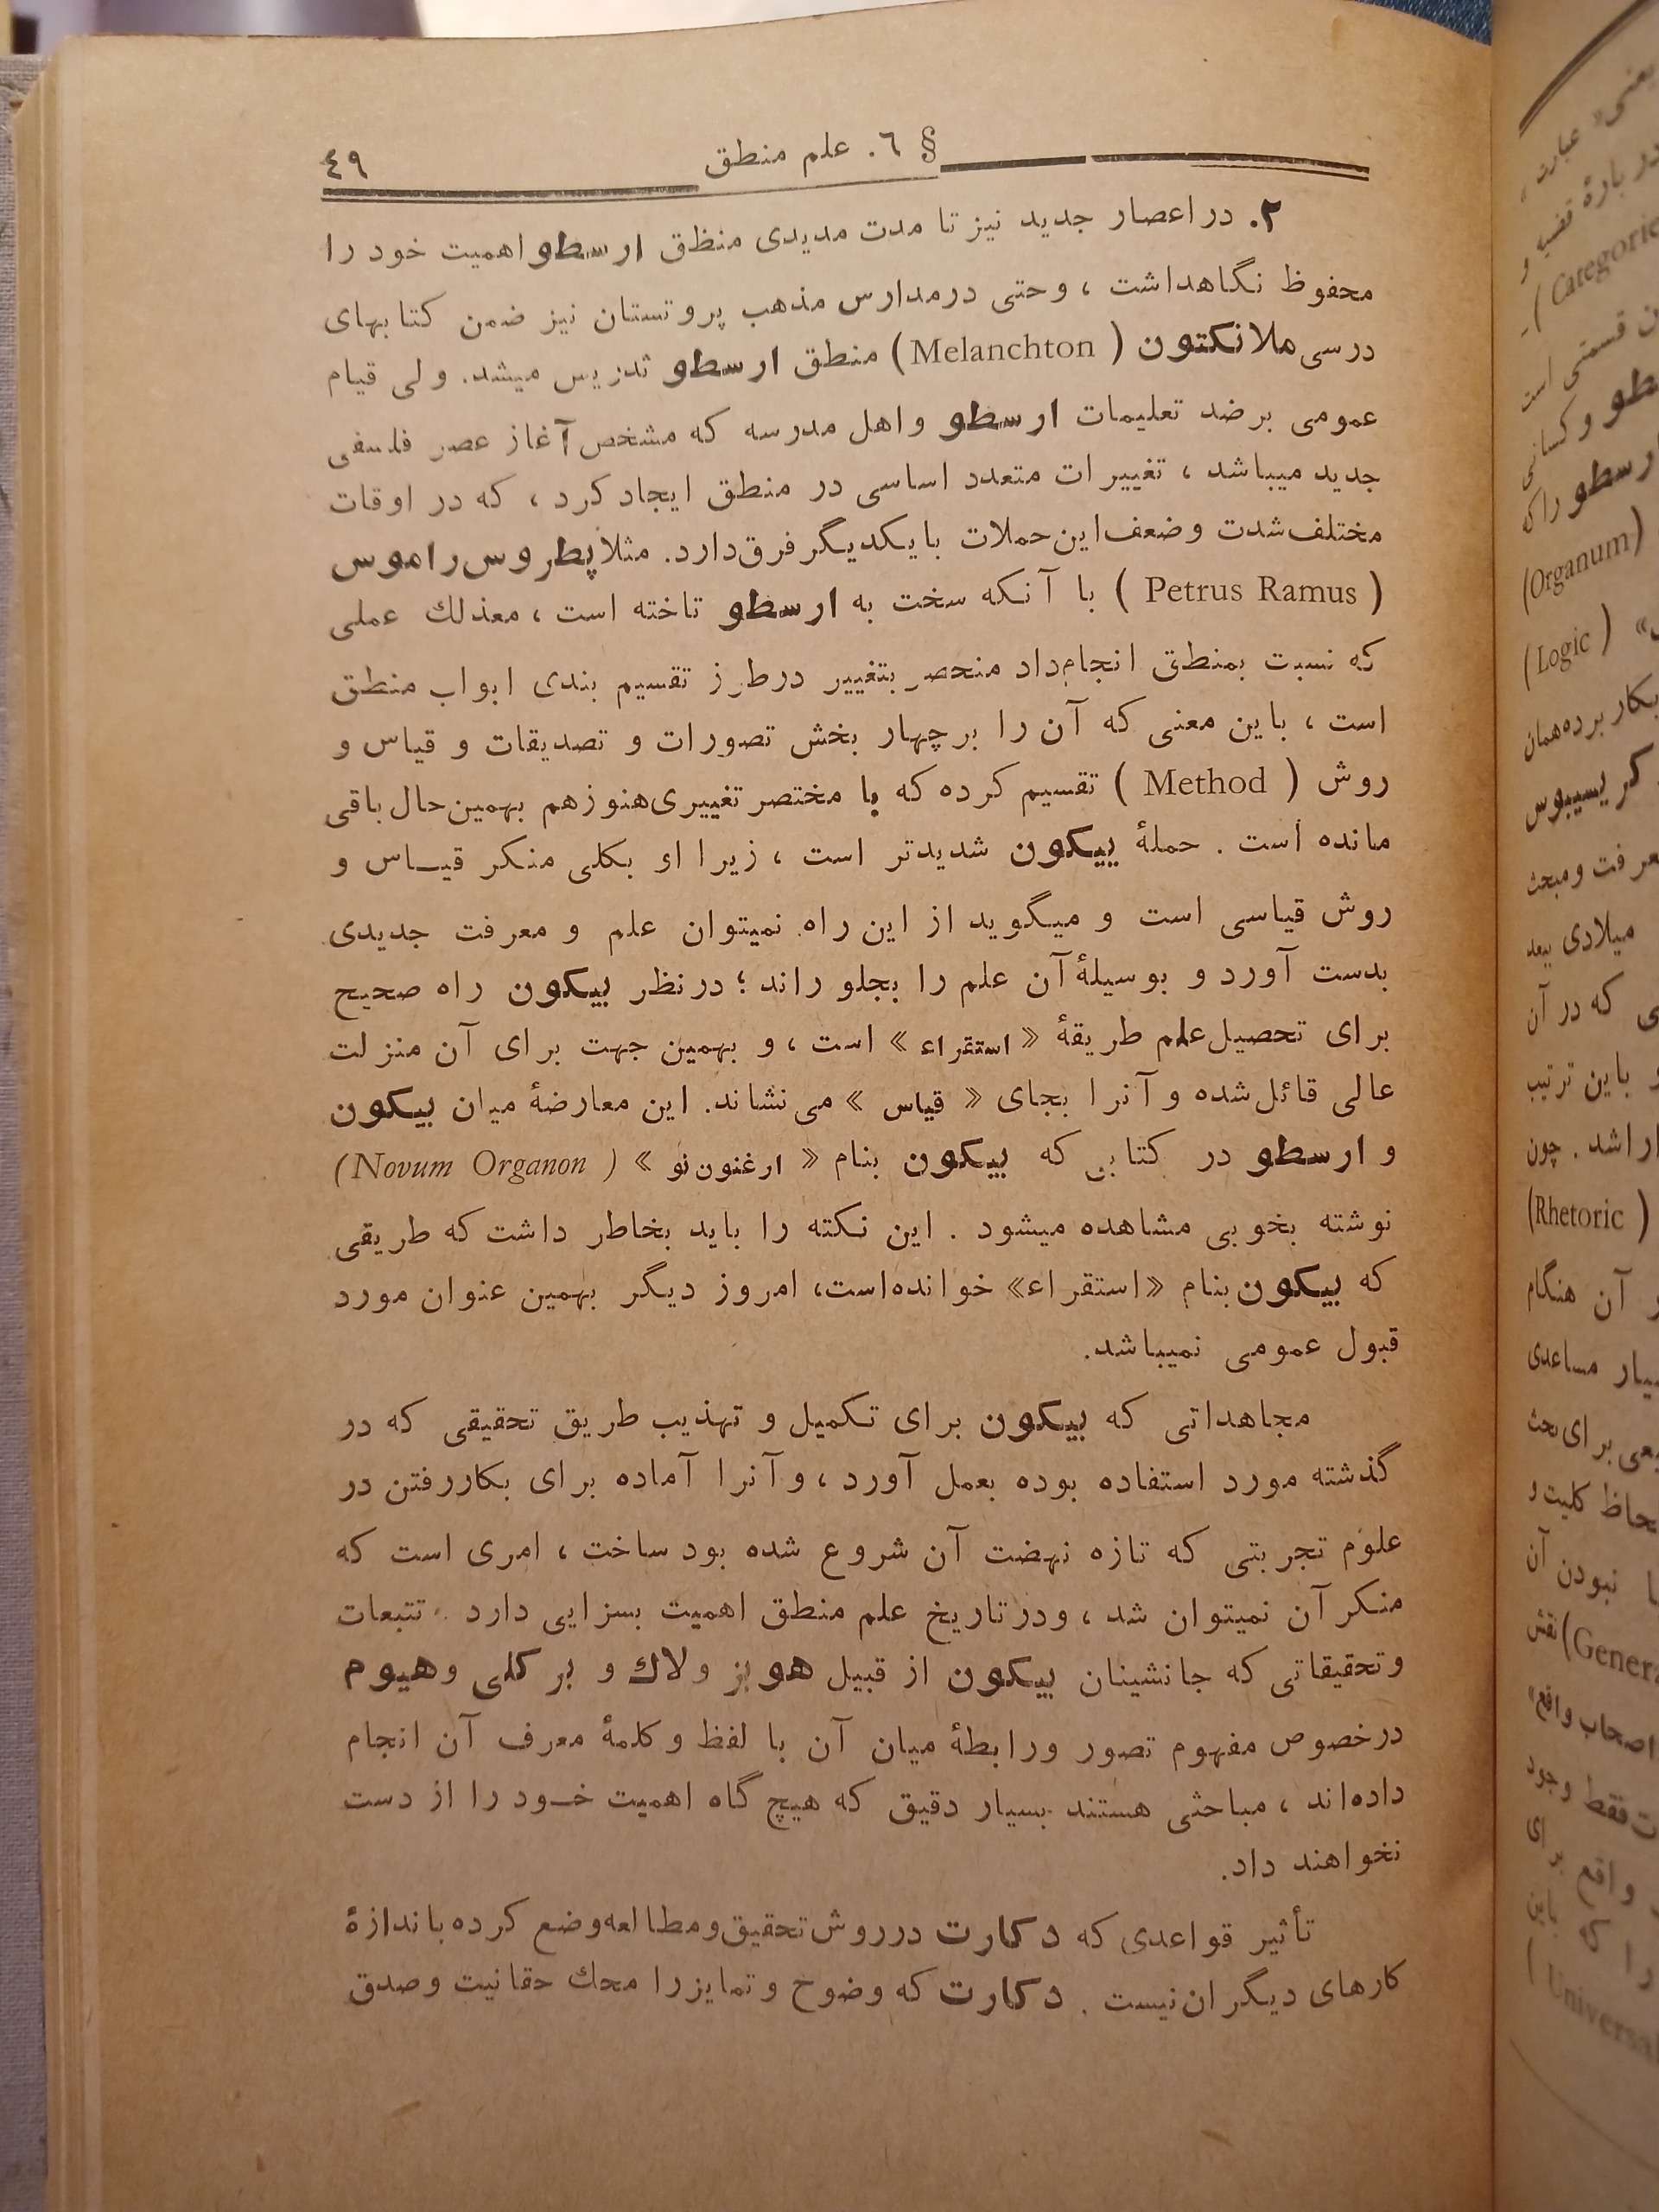 § ٦. علم منطق
٤٩
٢. در اعصار جدید نیز تا مدت مدیدی منظق ارسطو اهمیت خود را
محفوظ نگاهداشت ، وحتی درمدارس مذهب پروتستان نیز ضمن کتابهای
درسی ملانکتون ( Melanchton ) منطق ارسطو تدریس میشد. ولی قیام
عمومی برضد تعلیمات ارسطو واهل مدرسه که مشخص آغاز عصر فلسفی
جدید میباشد ، تغییرات متعدد اساسی در منطق ایجاد کرد ، که در اوقات
مختلف شدت وضعف این حملات با یکدیگر فرق دارد. مثلاً پطروس راموس
( Petrus Ramus ) با آنکه سخت به ارسطو تاخته است ، معذلك عملی
که نسبت بمنطق انجام داد منحصر بتغییر درطرز تقسیم بندی ابواب منطق
است ، باین معنی که آن را برچهار بخش تصورات و تصدیقات و قیاس و
روش ( Method ) تقسیم کرده که با مختصر تغییری هنوزهم بهمین حال باقی
مانده است . حملهٔ بیکون شدیدتر است ، زیرا او بکلی منکر قیـاس و
روش قیاسی است و میگوید از این راه نمیتوان علم و معرفت جدیدی
بدست آورد و بوسیلهٔ آن علم را بجلو راند ؛ درنظر بیکون راه صحیح
برای تحصیل علم طریقهٔ « استقراء » است ، و بهمین جهت برای آن منزلت
عالی قائل شده و آنرا بجای « قیاس » می نشاند. این معارضهٔ میان بیکون
و ارسطو در کتابی که بیکون بنام « ارغنون نو » ( Novum Organon )
نوشته بخوبی مشاهده میشود . این نکته را باید بخاطر داشت که طریقی
که بیکون بنام «استقراء» خوانده است، امروز دیگر بهمین عنوان مورد
قبول عمومی نمیباشد.
مجاهداتی که بیکون برای تکمیل و تهذیب طریق تحقیقی که در
گذشته مورد استفاده بوده بعمل آورد ، و آنرا آماده برای بکاررفتن در
علوم تجربتی که تازه نهضت آن شروع شده بود ساخت ، امری است که
منکر آن نمیتوان شد ، ودرتاریخ علم منطق اهمیت بسزایی دارد . تتبعات
وتحقیقاتی که جانشینان بیکون از قبیل هوبز و لاك و برکلی و هیوم
درخصوص مفهوم تصور ورابطهٔ میان آن با لفظ وکلمهٔ معرف آن انجام
داده اند ، مباحثی هستند بسیار دقیق که هیچ گاه اهمیت خـود را از دست
نخواهند داد.
تأثیر قواعدی که دکارت درروش تحقیق ومطالعه وضع کرده باندازهٔ
کارهای دیگران نیست . دکارت که وضوح و تمایزرا محك حقانیت وصدق
یعنی «عبارت»
در بارهٔ قضیه و
( Categoric
ن قسمتی است
طو و کسانی
رسطو را که
(Organum)
( Logic )
بکار برده همان
کریسیپوس
معرفت و مبحث
میلادی ببعد
ی که در آن
و باین ترتیب
ارا شد . چون
(Rhetoric )
و آن هنگام
سیار مساعدی
یعی برای بحث
لحاظ کلیت و
ا نبودن آن
(Genera نقش
اصحاب واقع»
ت فقط وجود
واقع برای
را که باین
Universal